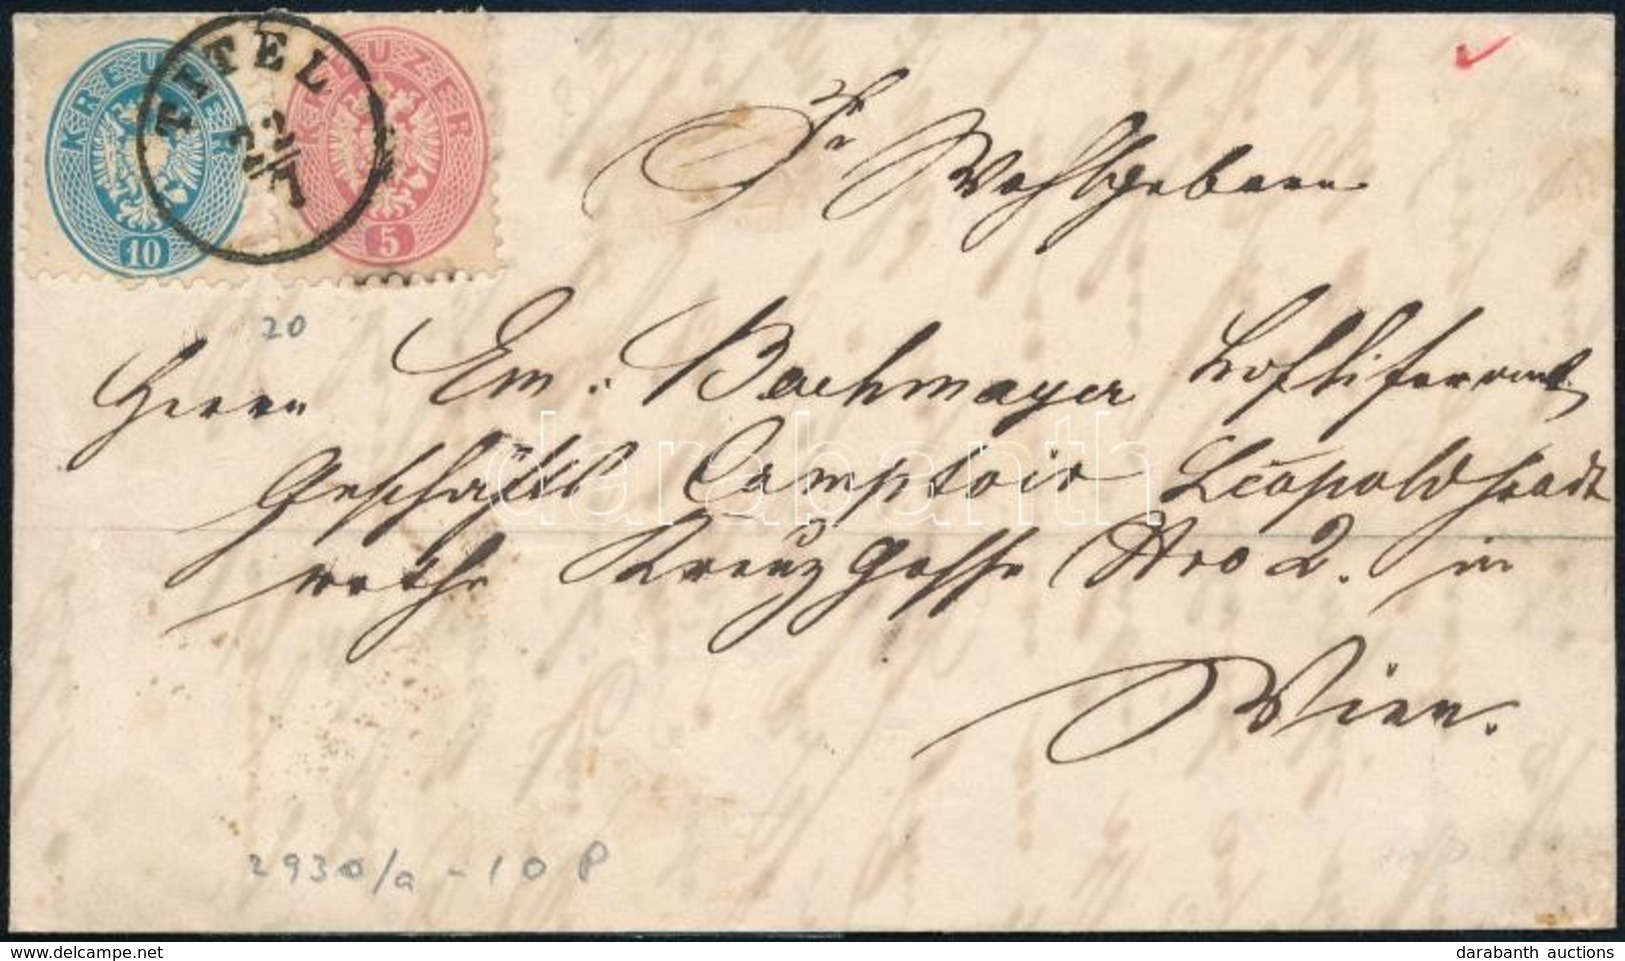 KREUZER 10
KREUZER 5
TITEL
22/7
Sr Wohlgeboren
20
Herrn Em. Bachmayer Hoflieferant
Geschäfts Comptoir Leopoldstadt
rothe Kreuz Gasse Nro 2. in
Wien.
2930/a - 10 P
darabanth
darabanth auctions